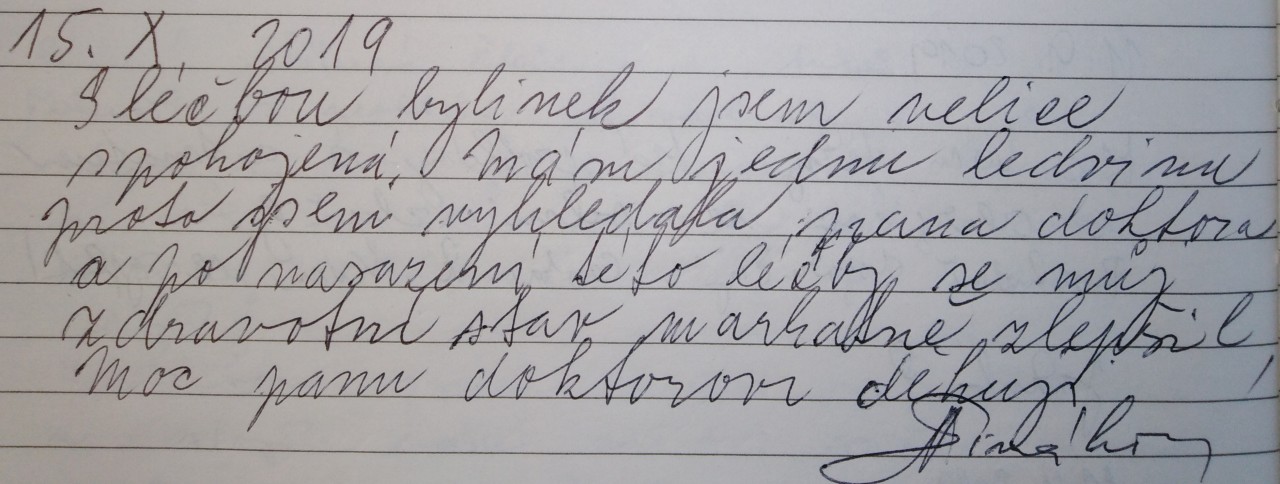 15. X. 2019
S léčbou bylinek jsem velice
spokojená. Mám jednu ledvinu
proto jsem vyhledala pana doktora
a po nasazení této léčby se můj
zdravotní stav markatně zlepšil,
Moc panu doktorovi dekuji